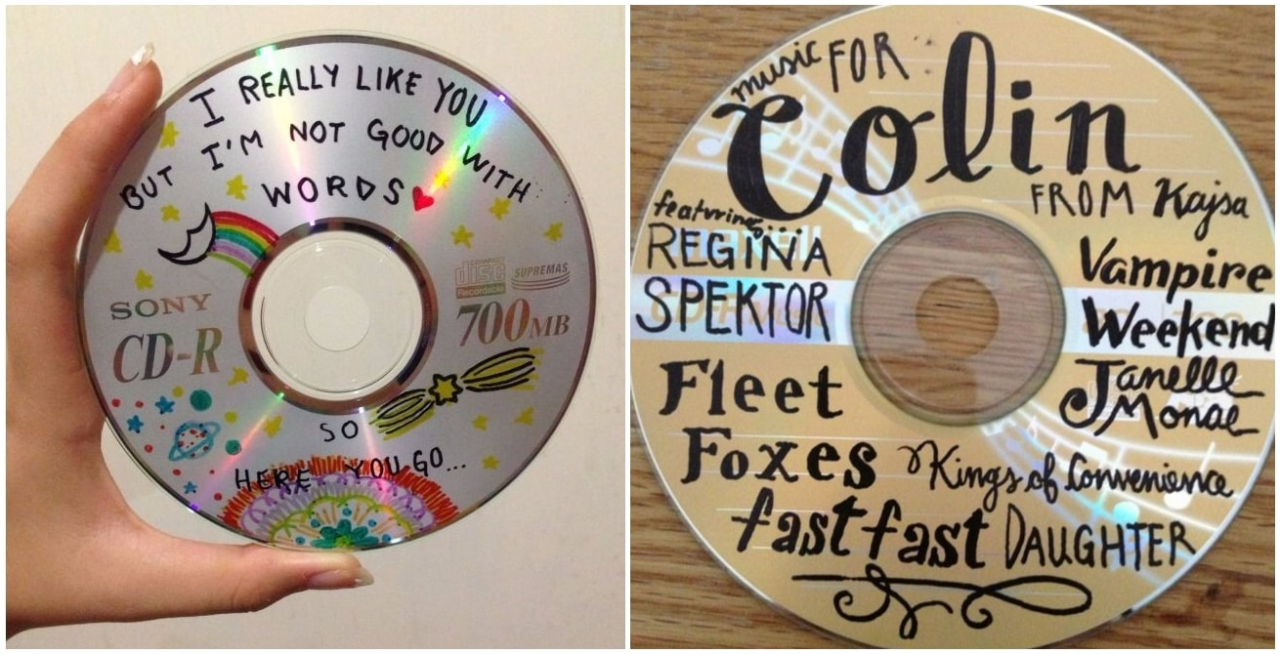 I REALLY LIKE YOU
BUT I'M NOT GOOD WITH
WORDS
SONY
CD-R
COMPACT
disc
Recordable
SUPREMAS
700MB
SO
HERE YOU GO...
music FOR
Colin
FROM Kajsa
featuring
REGINA
SPEKTOR
Vampire
Weekend
Janelle
Monae
Fleet
Foxes
Kings of Convenience
fastfast
DAUGHTER